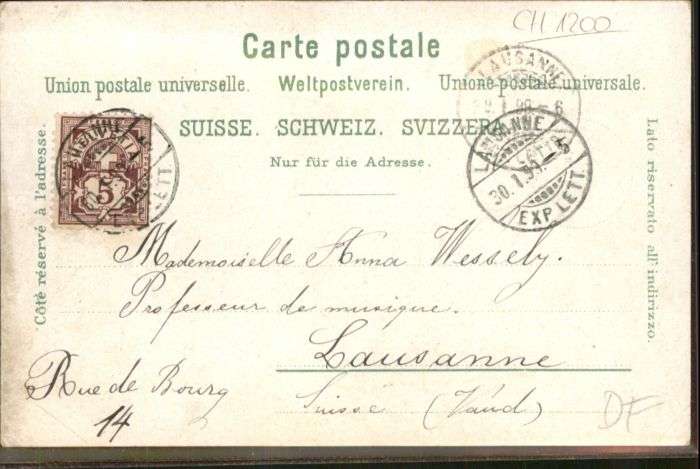 CH 1200
Carte postale
Union postale universelle. Weltpostverein. Unione postale universale.
SUISSE. SCHWEIZ. SVIZZERA
Nur für die Adresse.
Côté réservé à l'adresse.
Lato riservato all' indirizzo.
5
LAUSANNE
99 - 6
LAUSANNE
30.1.99. - 5
EXP. LETT.
LETT.
Mademoiselle Anna Wessely.
Professeur de musique.
Lausanne
Rue de Bourg
14
Suisse (Vaud)
DF